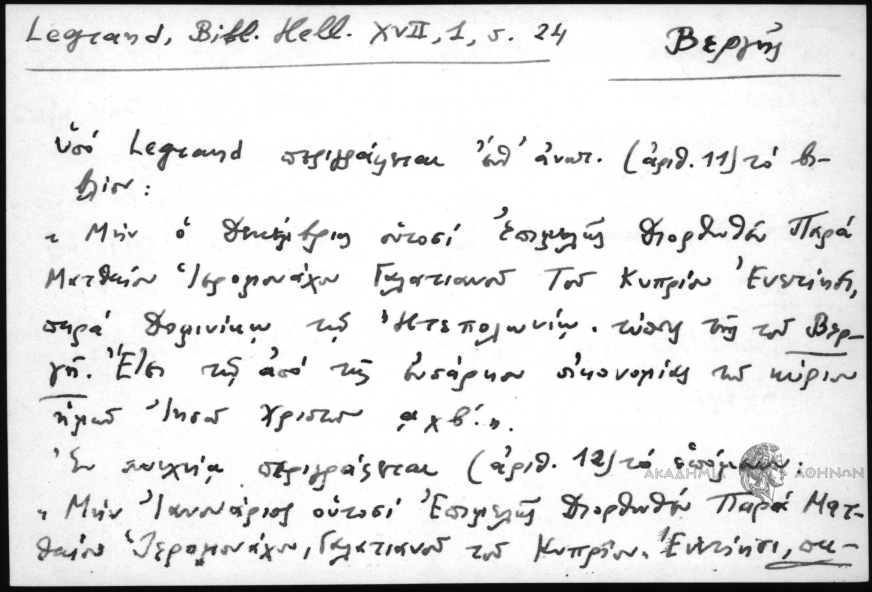 Legrand, Bibl. Hell. XVII, 1, σ. 24
Βεργῆς
ὑπό Legrand περιγράφεται ἐπ' ἀνατ. (ἀριθ. 11) τό βι-
βλίον:
« Μήν ὁ Δεκέμβριος οὑτοσί Ἐπιμελῆς Διορθωθείς Παρά
Ματθαίου Ἱερομονάχου Γαλατιανοῦ Τοῦ Κυπρίου Ἐνετίησι,
παρά Δομινίκῳ τῷ Ἡτεπολωνίῳ. τύποις τῆς τοῦ Βερ-
γῆ. Ἔτει τῷ ἀπό τῆς ἐνσάρκου οἰκονομίας τοῦ κυρίου
ἡμῶν Ἰησοῦ Χριστοῦ ͵αχβ΄.».
Ἐν συνεχείᾳ περιγράφεται (ἀριθ. 12) τό ἑπόμενον:
ΑΚΑΔΗΜΙΑ ΑΘΗΝΩΝ
« Μήν Ἰανουάριος οὑτοσί Ἐπιμελῆς Διορθωθείς Παρά Ματ-
θαίου Ἱερομονάχου, Γαλατιανοῦ τοῦ Κυπρίου. Ἐνετίησι, πα-